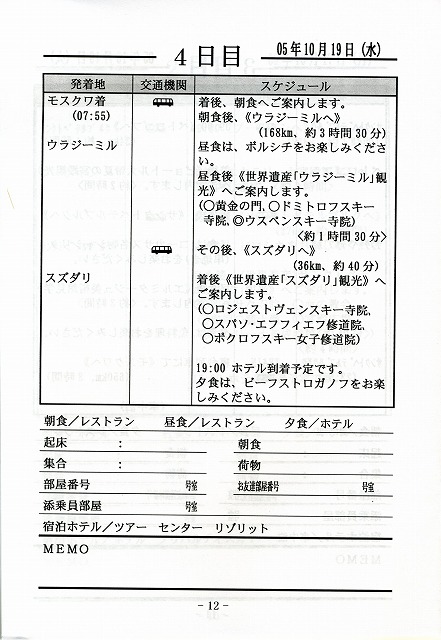 4日目
05年10月19日(水)
発着地 交通機関 スケジュール
モスクワ着 着後、朝食へご案内します。
(07:55) 朝食後、《ウラジーミルへ》
(168km、約3時間30分)
ウラジーミル 昼食は、ボルシチをお楽しみくださ
い。
昼食後《世界遺産「ウラジーミル」観
光》へご案内します。
(○黄金の門、○ドミトロフスキー
寺院、◎ウスペンスキー寺院)
<約1時間30分>
その後、《スズダリへ》
(36km、約40分)
スズダリ 着後《世界遺産「スズダリ」観光》へ
ご案内します。
(○ロジェストヴェンスキー寺院、
○スパソ・エフフィエフ修道院、
○ポクロフスキー女子修道院)
19:00 ホテル到着予定です。
夕食は、ビーフストロガノフをお楽
しみください。
朝食/レストラン 昼食/レストラン 夕食/ホテル
起床 : 朝食
集合 : 荷物
部屋番号 号室 お友達部屋番号 号室
添乗員部屋 号室
宿泊ホテル/ツアー センター リゾリット
MEMO
- 12 -